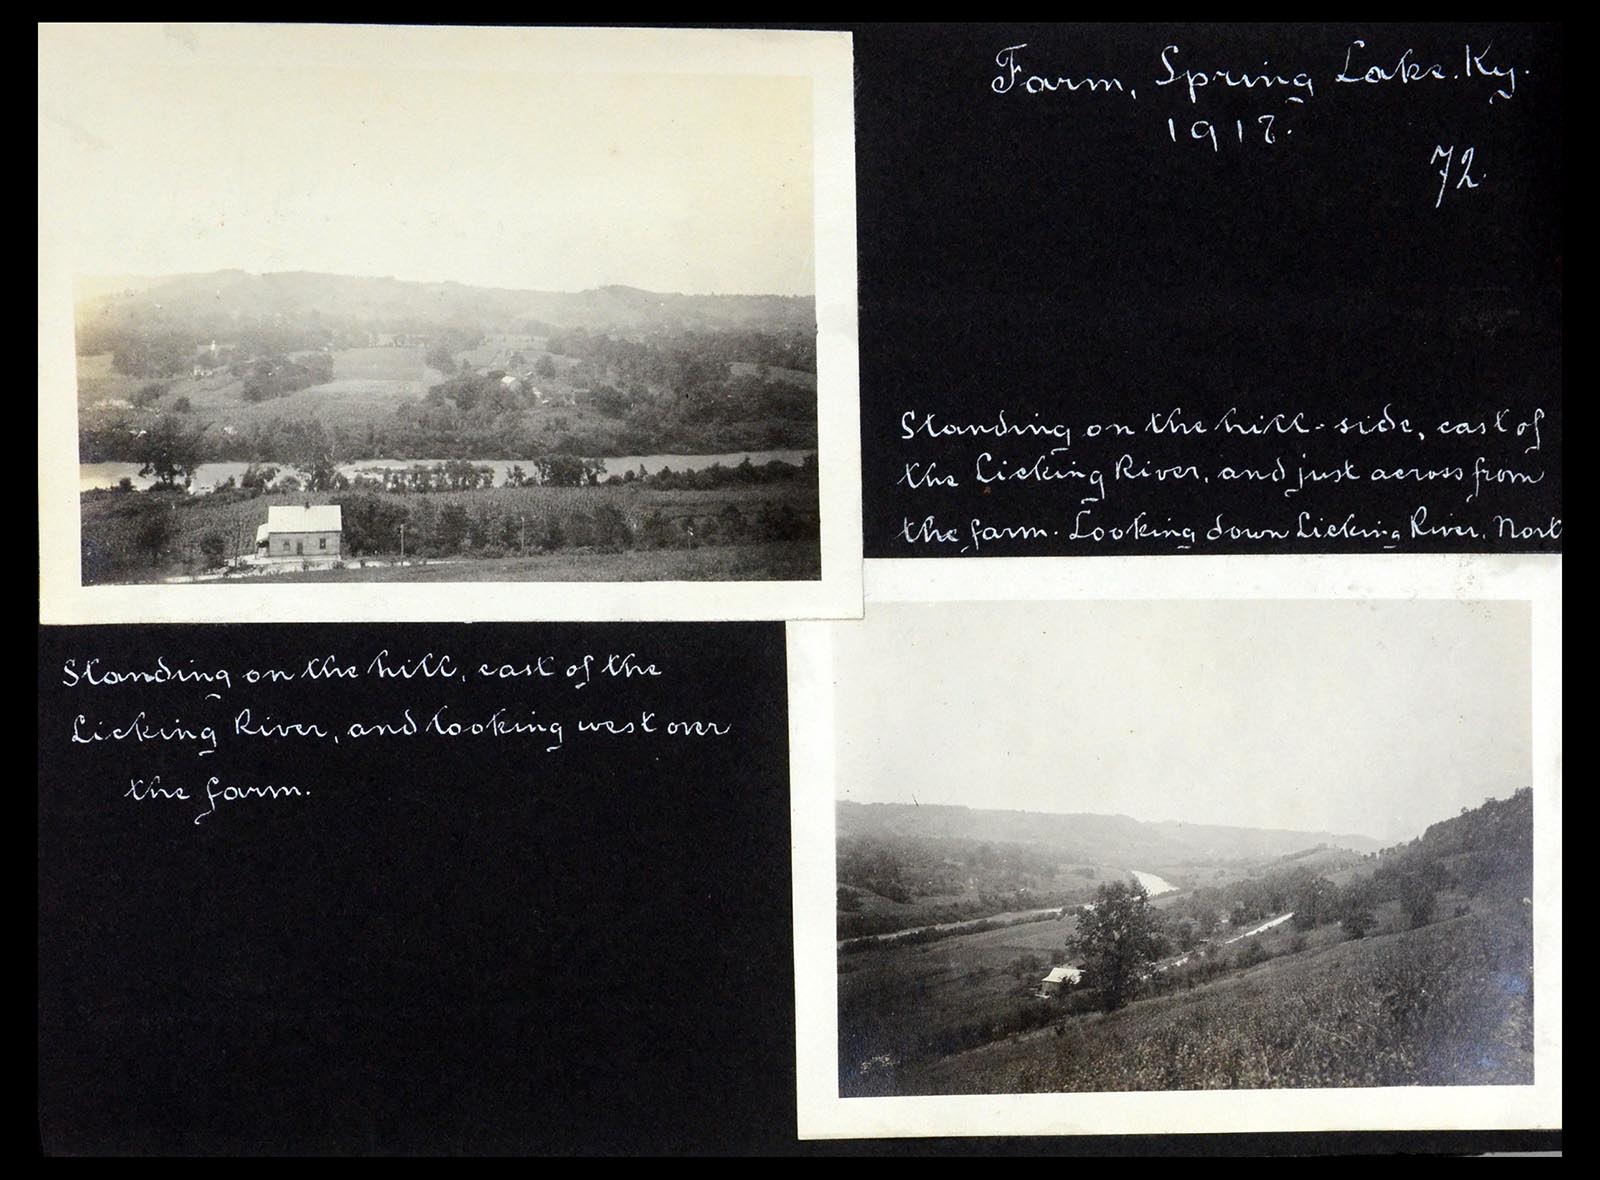 Farm, Spring Lake. Ky.
1917.
72.
Standing on the hill-side, east of
the Licking River, and just across from
the farm. Looking down Licking River, Nort
Standing on the hill, east of the
Licking River, and looking west over
the farm.